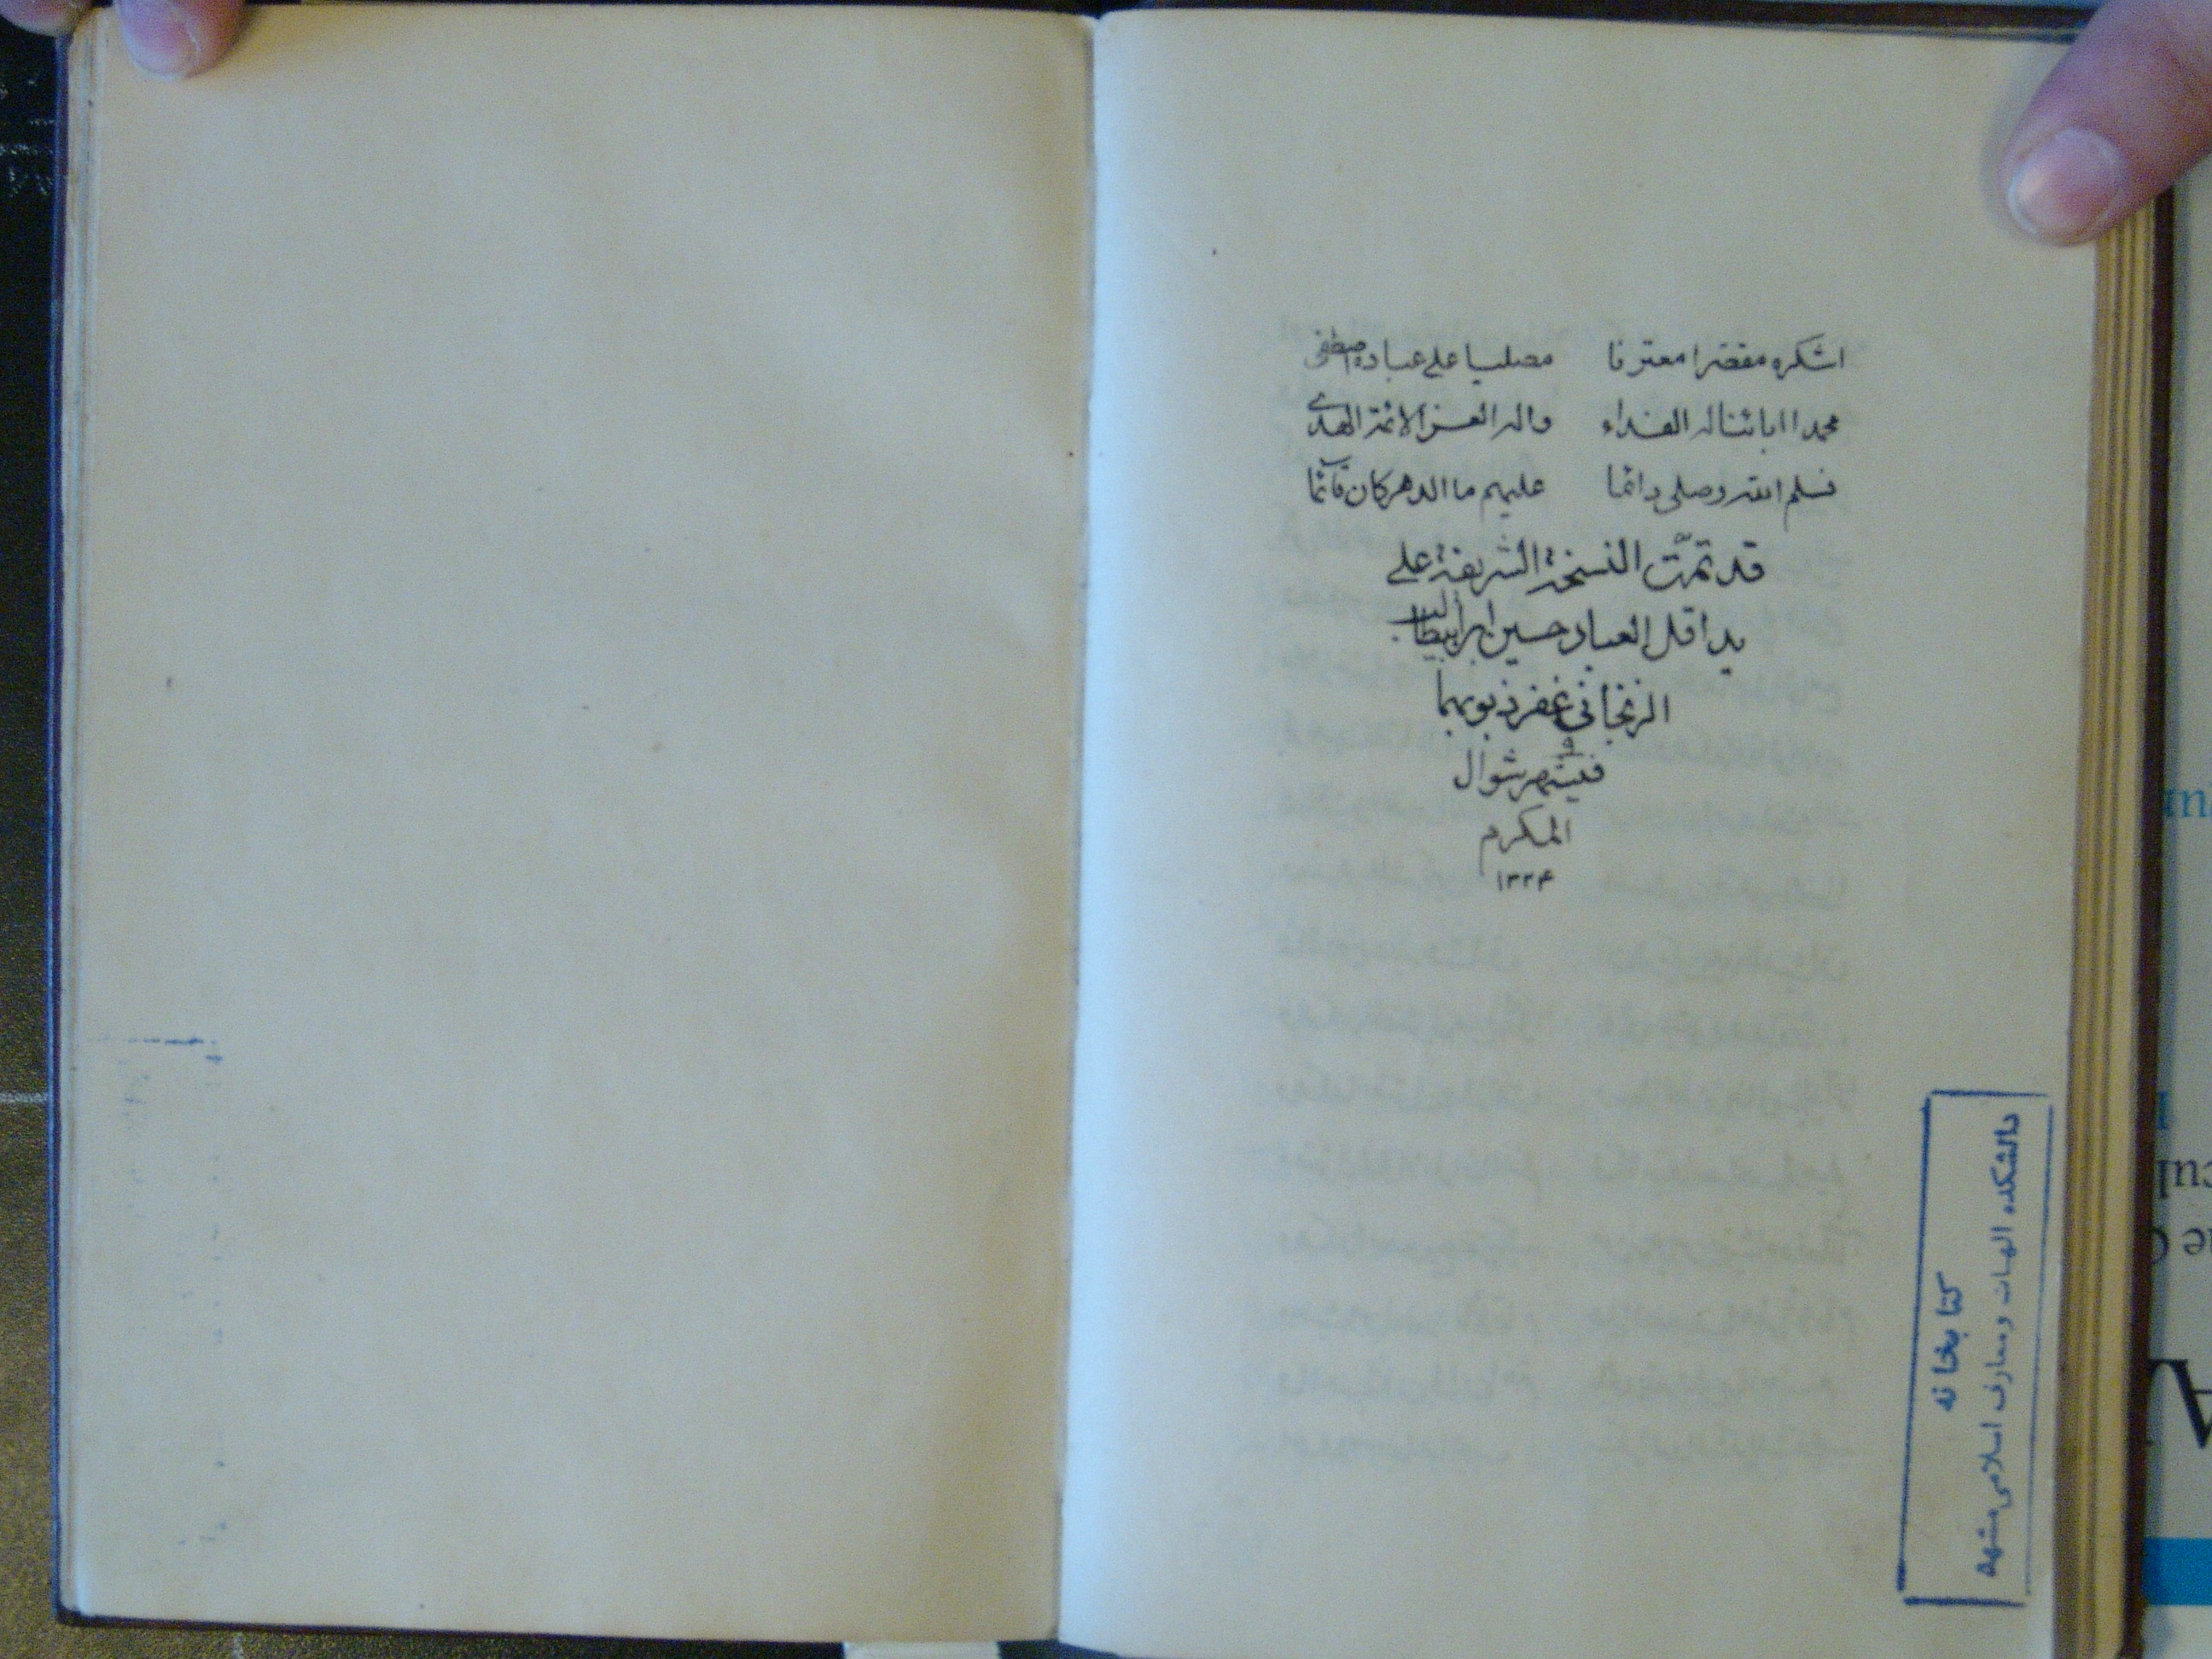 اشکره مقصرا معترفا    مصلیا علی عباده اصطفی
محمدا ابائنا له الفداء    واله الغر الائمة الهدی
فسلم الله وصلی دائما    علیهم ما الدهر کان قآئما
قد تمّت النسخة الشریفة علی
ید اقل العباد حسین ابن ابیطالب
الزنجانی غفر ذنوبهما
فی شهر شوال
المکرم
۱۳۳۴
کتابخانه
دانشکده الهیات و معارف اسلامی مشهد